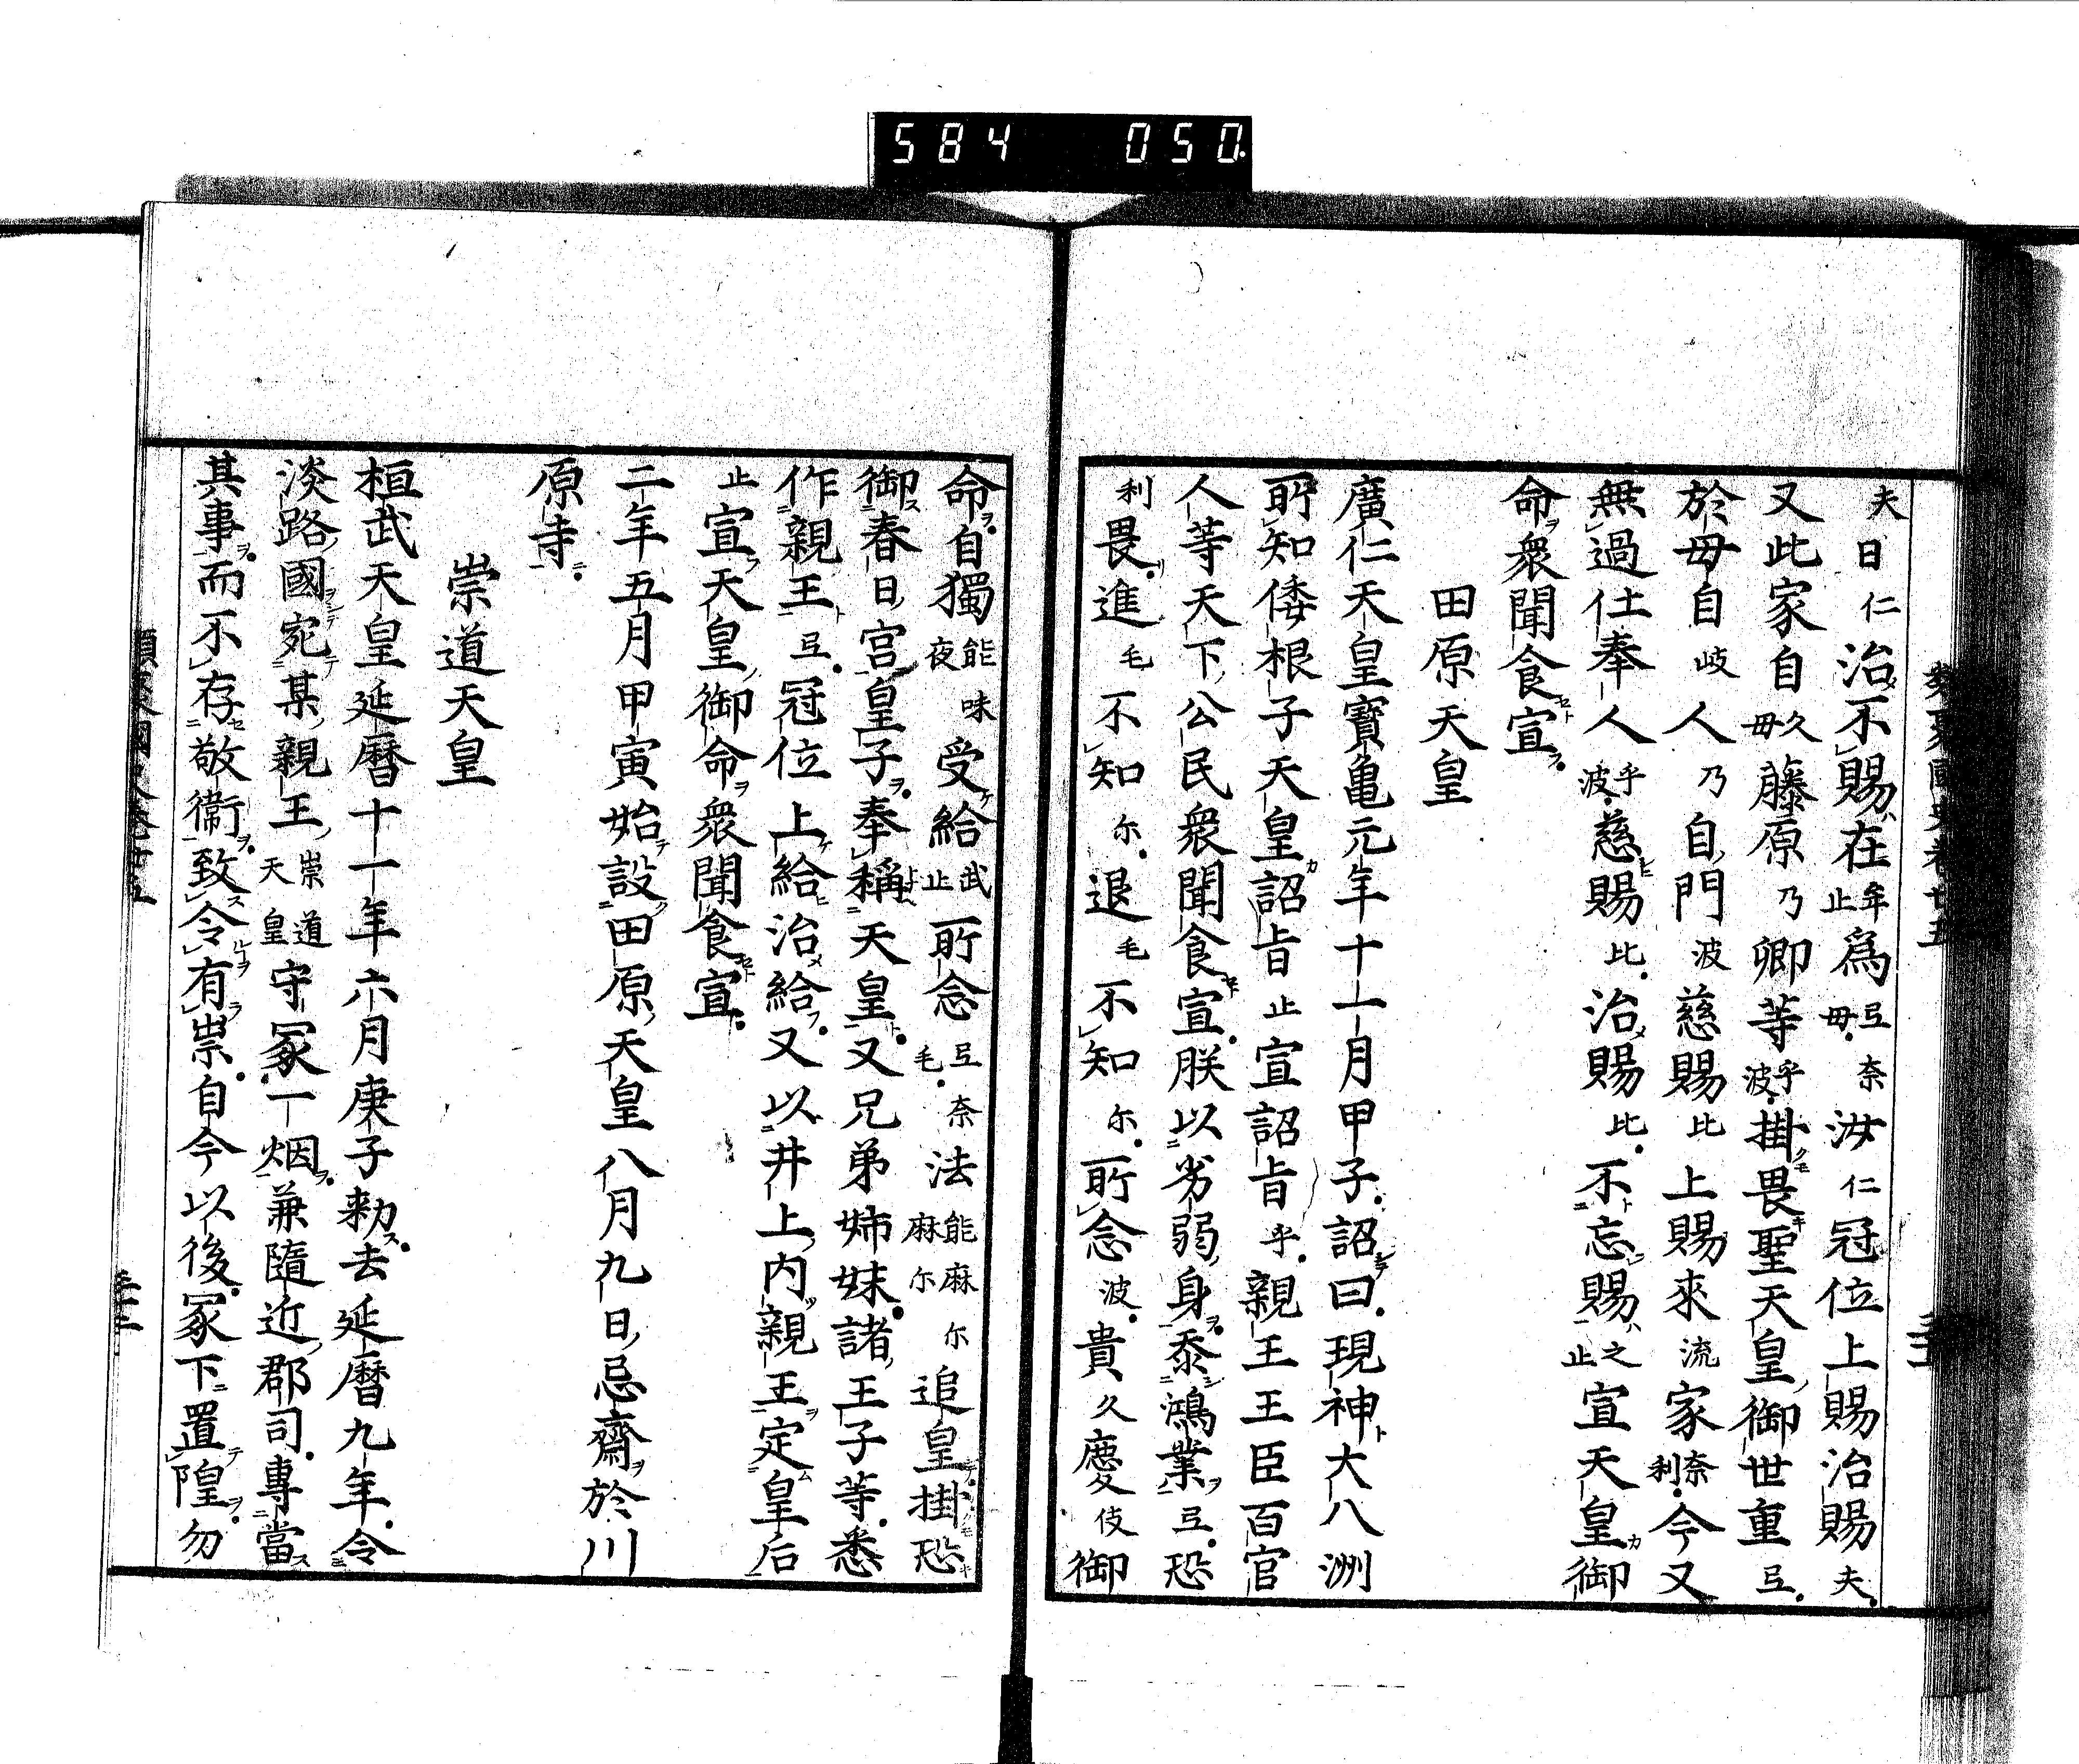 584 050
類聚國史卷廿五
夫日仁治不賜在牟止爲弖毋奈汝仁冠位上賜治賜夫
又此家自久毋藤原乃卿等乎波掛畏聖天皇御世重弖
於毋自岐人乃自門波慈賜比上賜來流家奈利今又
無過仕奉人乎波慈賜比治賜比不忘賜之止宣天皇御
命衆聞食宣
田原天皇
廣仁天皇寶亀元年十一月甲子詔曰現神大八洲
所知倭根子天皇詔旨止宣詔旨乎親王王臣百官
人等天下公民衆聞食宣朕以劣弱身忝鴻業弖恐
利畏進毛不知尓退毛不知尓所念波貴久慶伎御
命自獨能夜味受給武止所念弖毛奈法能麻麻尓尓追皇掛恐
御春日宮皇子奉稱天皇又兄弟姉妹諸王子等悉
作親王弖冠位上給治給又以井上内親王定皇后
止宣天皇御命衆聞食宣
二年五月甲寅始設田原天皇八月九日忌齋於川
原寺
崇道天皇
桓武天皇延暦十一年六月庚子勅去延暦九年令
淡路國宛某親王崇道天皇守冢一烟兼隨近郡司專當
其事而不存敬衞致令有祟自今以後冢下置隍勿
類聚國史卷廿五